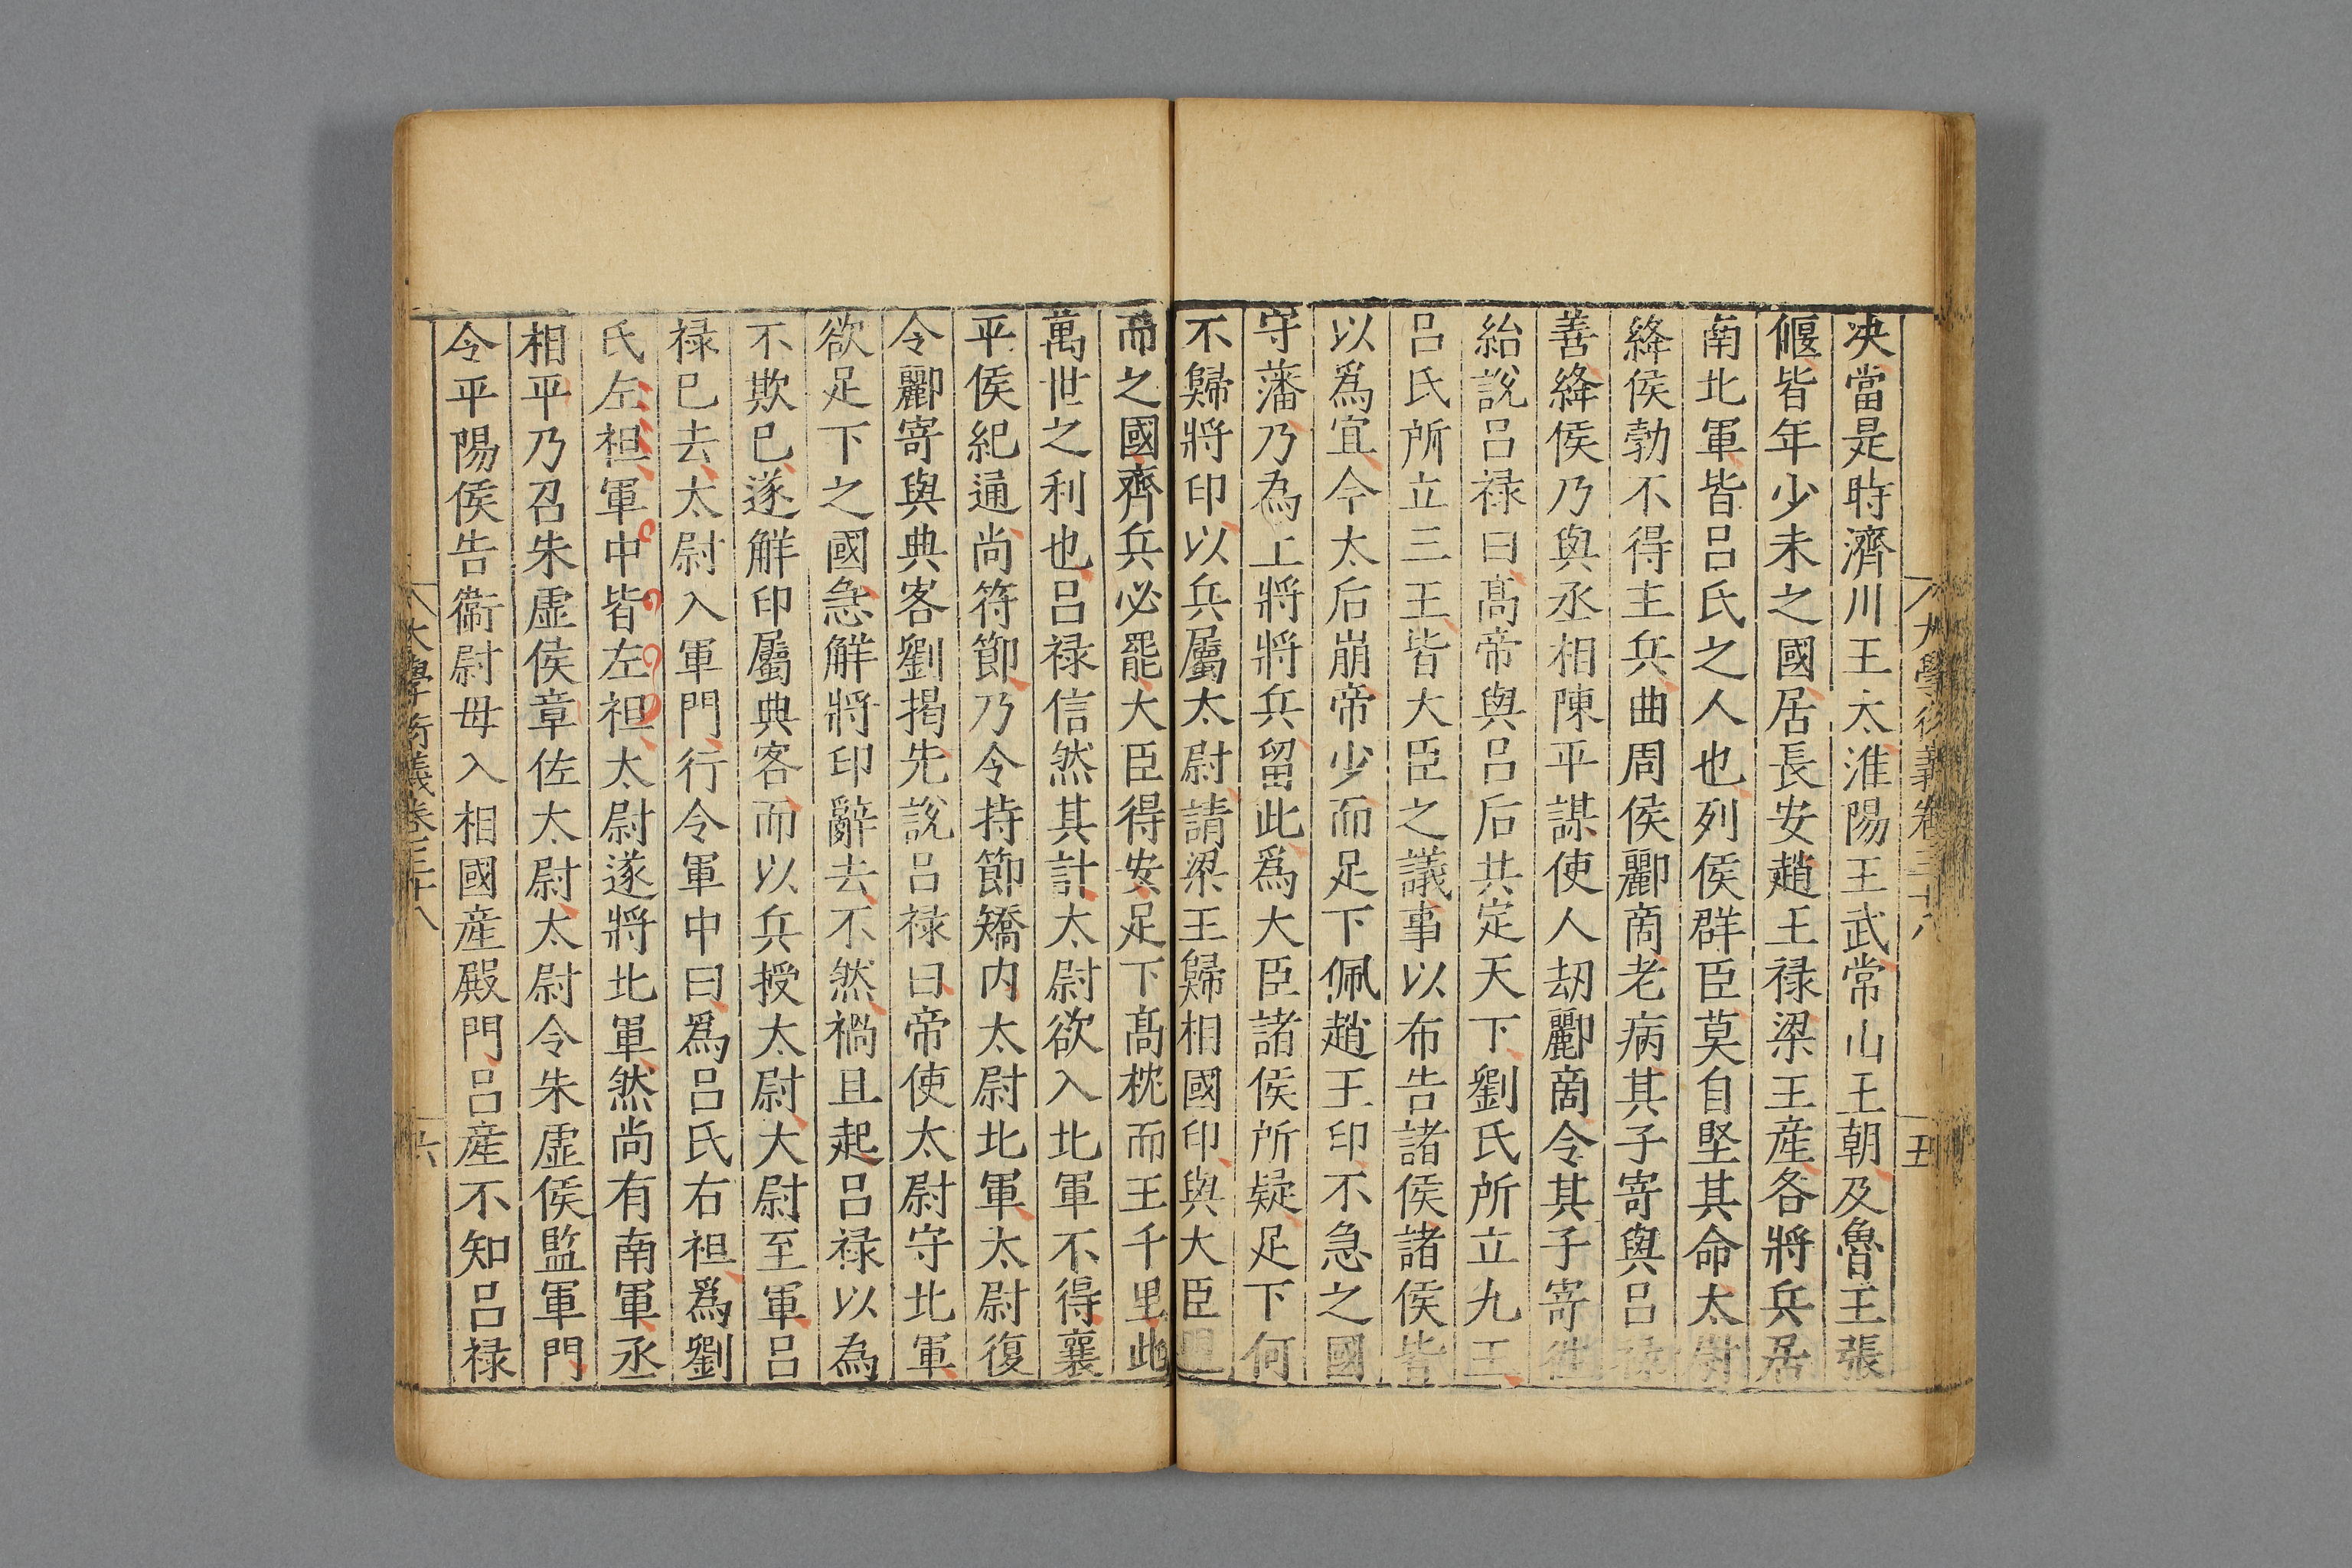 大學衍義卷三十八
五
决當是時濟川王太淮陽王武常山王朝及魯王張
偃皆年少未之國居長安趙王禄梁王産各將兵居
南北軍皆吕氏之人也列侯群臣莫自堅其命太尉
絳侯勃不得主兵曲周侯酈商老病其子寄與吕禄
善絳侯乃與丞相陳平謀使人刼酈商令其子寄徃
紿說吕禄曰髙帝與吕后共定天下劉氏所立九王
吕氏所立三王皆大臣之議事以布告諸侯諸侯皆
以爲宜今太后崩帝少而足下佩趙王印不急之國
守藩乃為上將將兵留此爲大臣諸侯所疑足下何
不歸將印以兵屬太尉請梁王歸相國印與大臣盟
而之國齊兵必罷大臣得安足下髙枕而王千里此
萬世之利也吕禄信然其計太尉欲入北軍不得襄
平侯紀通尚符節乃令持節矯内太尉北軍太尉復
令酈寄與典客劉揭先說吕禄曰帝使太尉守北軍
欲足下之國急解將印辭去不然禍且起吕禄以為
不欺已遂解印屬典客而以兵授太尉大尉至軍吕
禄已去太尉入軍門行令軍中曰爲吕氏右袒爲劉
氏左袒軍中皆左袒太尉遂將北軍然尚有南軍丞
相平乃召朱虛侯章佐太尉太尉令朱虛侯監軍門
令平陽侯告衞尉毋入相國産殿門吕産不知吕禄
大學衍義卷三十八
六